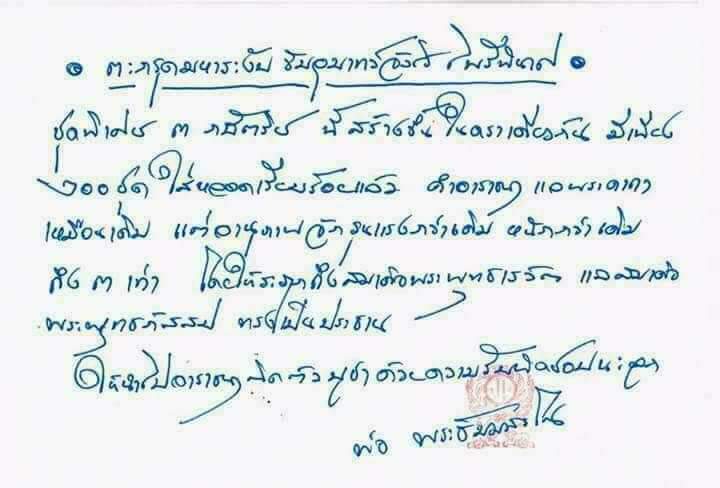 ๏ ตะกรุดมหาระงับ ไพรีพินาศ ๏
ชุดพิเศษ ๓ กษัตริย์ นี้ สร้างขึ้น ในคราเดียวกัน มีเพียง
๒๐๐ ชุด ใส่หลอดเรียบร้อยแล้ว คำอาราธนา และพระคาถา
เหมือนเดิม แต่อานุภาพ รุนแรงกว่าเดิม หนักกว่าเดิม
ถึง ๓ เท่า โดยให้ระลึกถึงสมเด็จพระพุทธ และสมเด็จ
พระพุทธกัสสป ทรงเป็นประธาน
ให้นำไปอาราธนาติดตัว บูชา ด้วยความรับผิดชอบนะลูก
พ่อ พระ